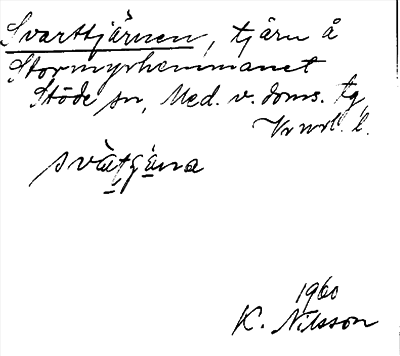 Svarttjärnen, tjärn å
Stormyrhemmanet
Stöde sn, Med. v. doms. tg,
Vrnrl. l.
svàtjäna
1960
K. Nilsson